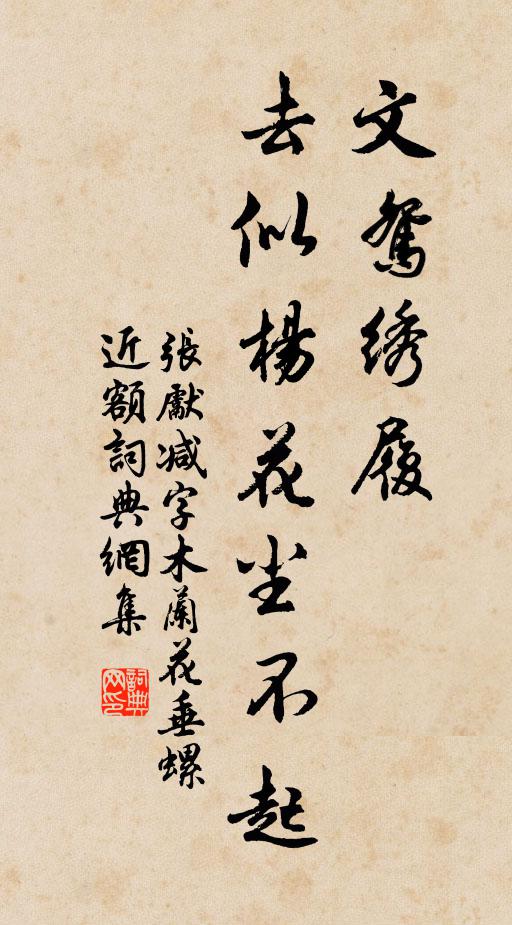 文鸳绣履
去似楊花尘不起
張獻减字木蘭花垂螺
近額詞典網集
詞典網印